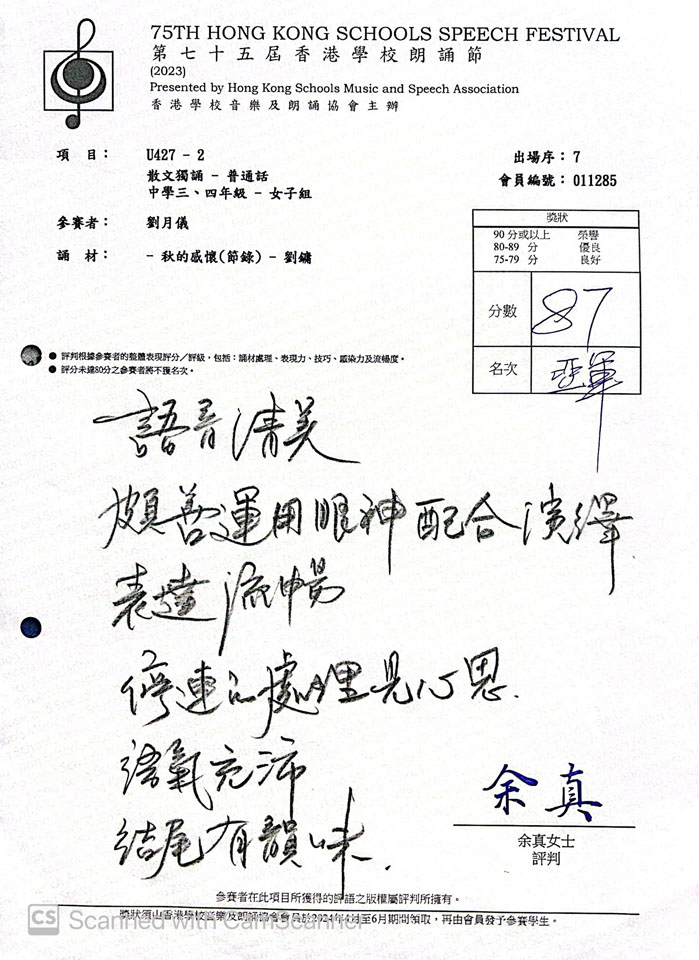 75TH HONG KONG SCHOOLS SPEECH FESTIVAL
第七十五屆香港學校朗誦節
(2023)
Presented by Hong Kong Schools Music and Speech Association
香港學校音樂及朗誦協會主辦
項 目： U427 - 2 出場序： 7
散文獨誦 - 普通話 會員編號： 011285
中學三、四年級 - 女子組
參賽者： 劉月儀
誦 材： - 秋的感懷(節錄) - 劉鏞
獎狀
90 分或以上 榮譽
80-89 分 優良
75-79 分 良好
分數 87
名次 亞軍
● 評判根據參賽者的整體表現評分／評級，包括：誦材處理、表現力、技巧、感染力及流暢度。
● 評分未達80分之參賽者將不獲名次。
語音清美
頗善運用眼神配合演繹
表達流暢
停連的處理見心思.
語氣充沛
結尾有韻味.
余真
余真女士
評判
參賽者在此項目所獲得的評語之版權屬評判所擁有。
獎狀須由香港學校音樂及朗誦協會會員於2024年4月至6月期間領取，再由會員發予參賽學生。
CS Scanned with CamScanner